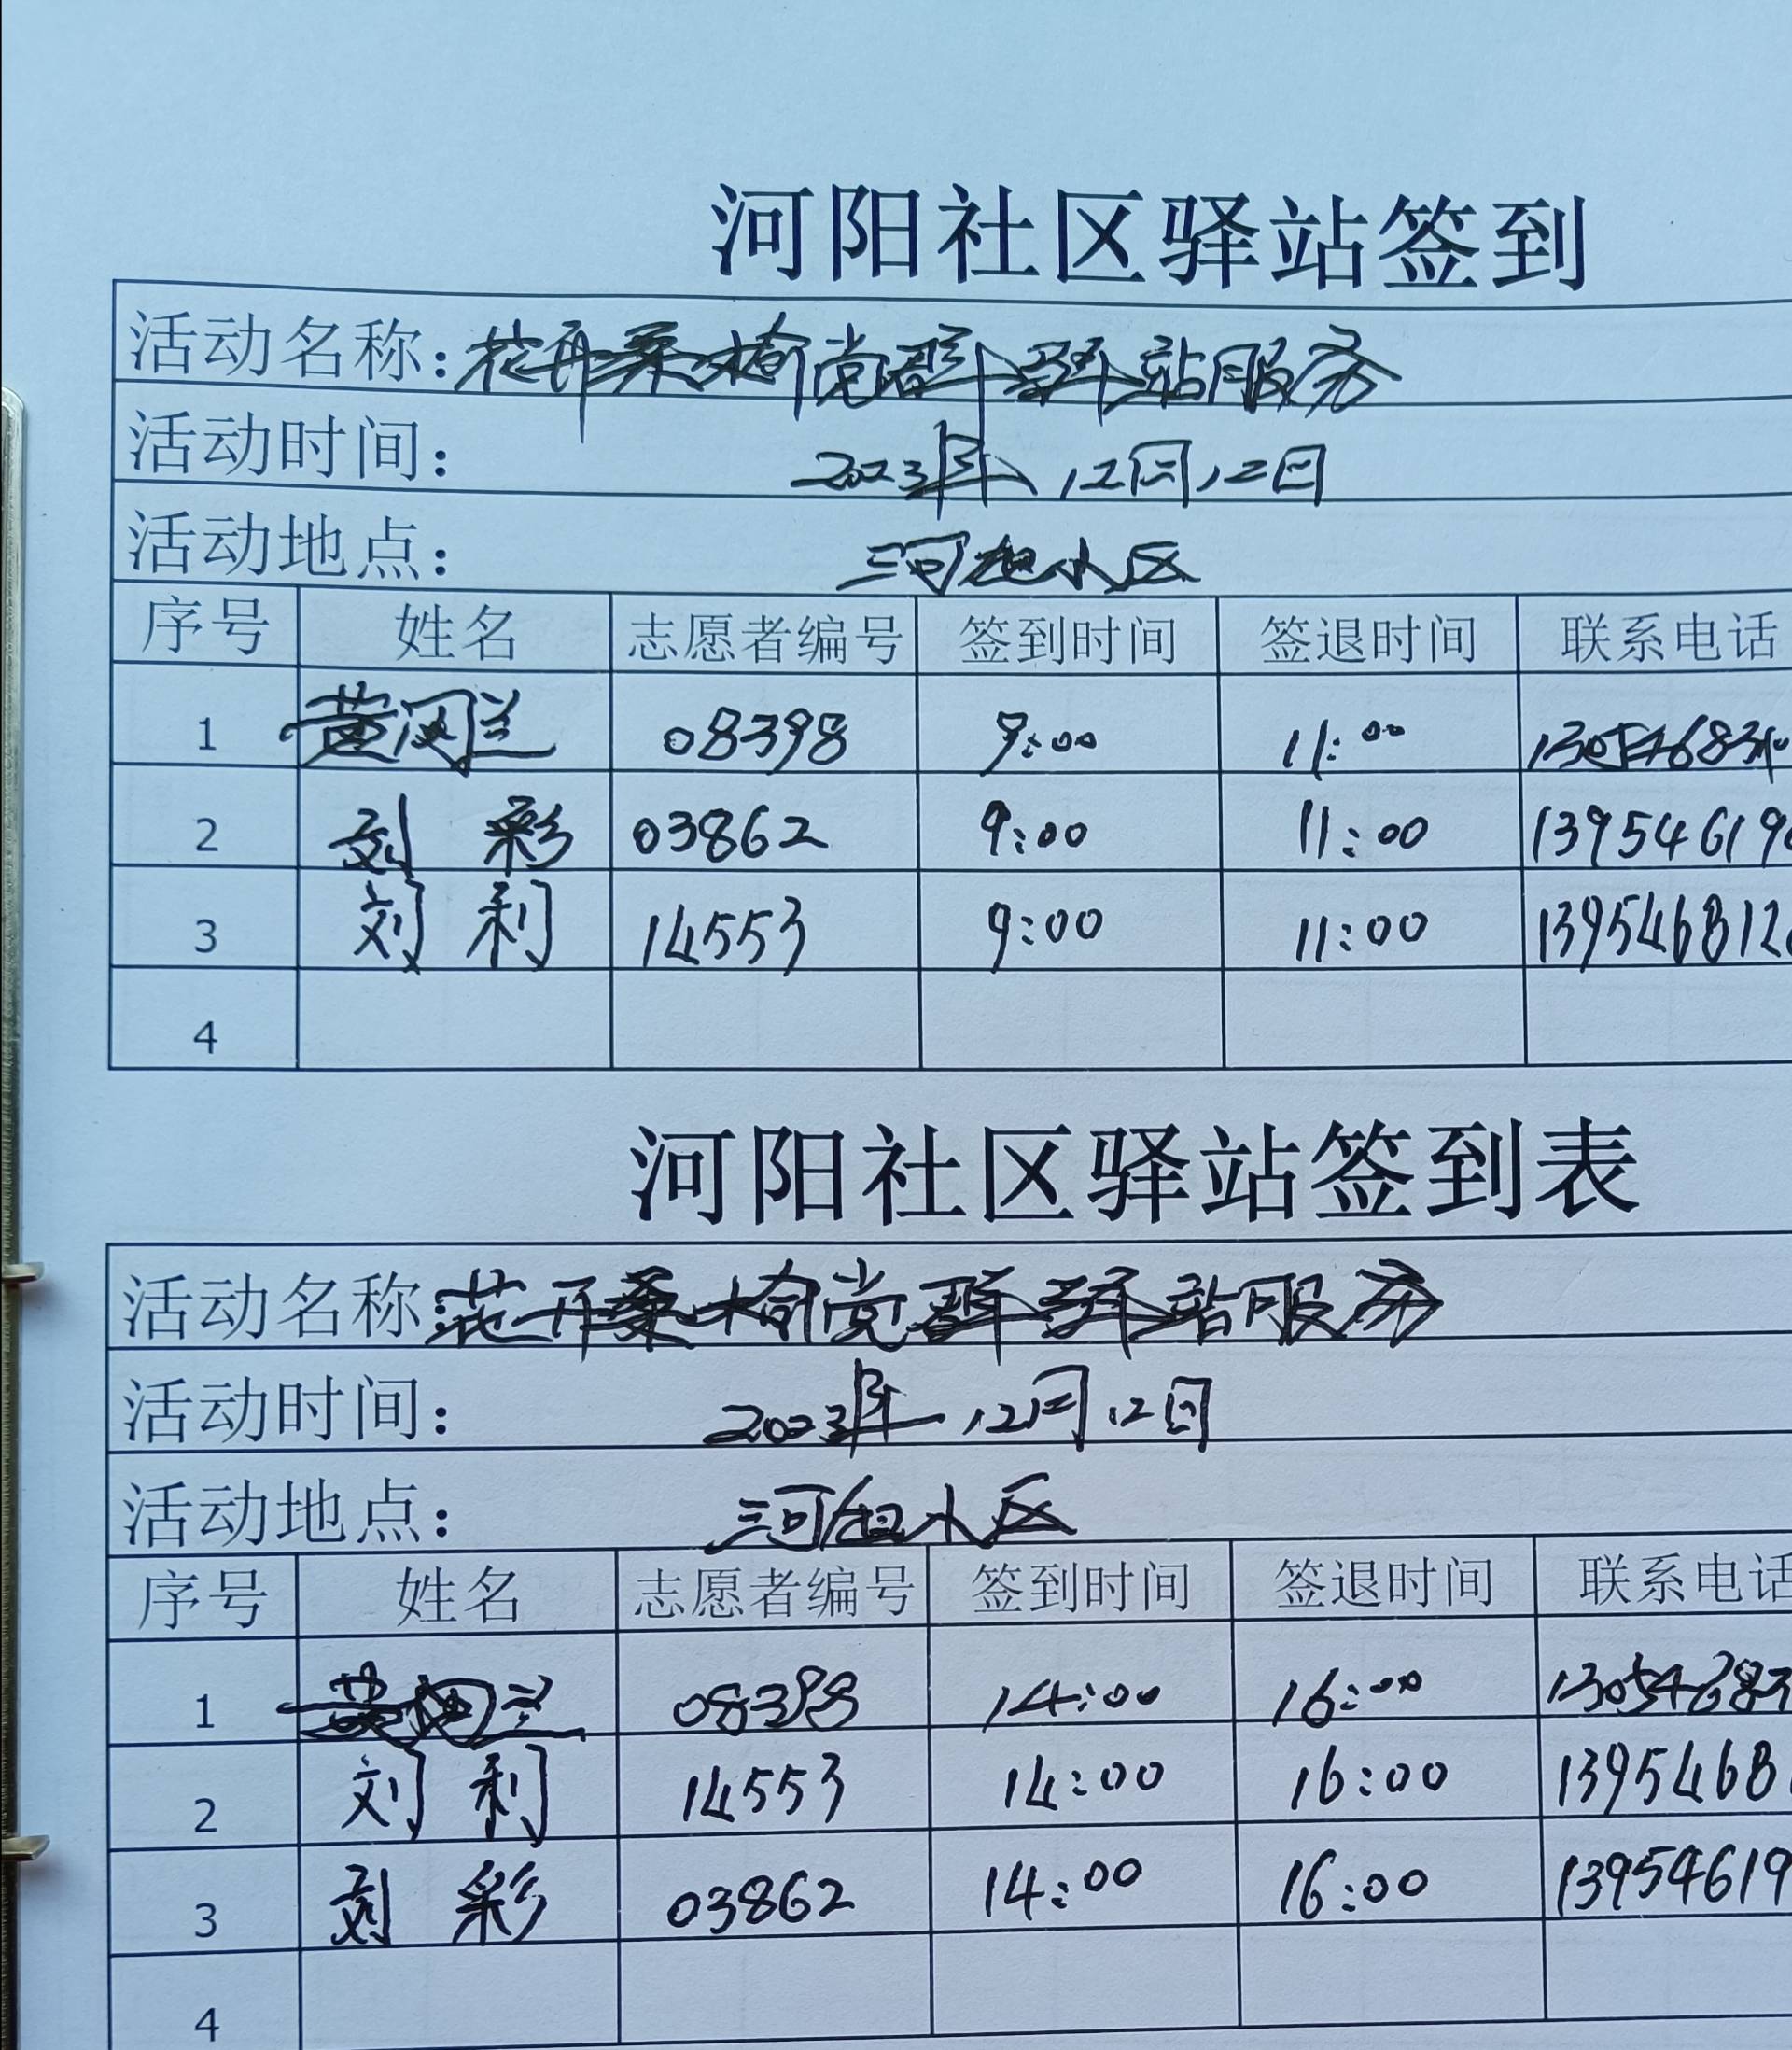 河阳社区驿站签到
活动名称：花开桑榆党群驿站服务
活动时间： 2023年12月12日
活动地点： 三河小区
序号 姓名 志愿者编号 签到时间 签退时间 联系电话
1 黄 兰 08398 9:00 11:00 13054683
2 刘彩 03862 9:00 11:00 139546196
3 刘利 14553 9:00 11:00 139546812
4
河阳社区驿站签到表
活动名称 花开桑榆党群驿站服务
活动时间： 2023年12月12日
活动地点： 三河小区
序号 姓名 志愿者编号 签到时间 签退时间 联系电话
1 黄 兰 08398 14:00 16:00 13054683
2 刘利 14553 14:00 16:00 1395468
3 刘彩 03862 14:00 16:00 13954619
4